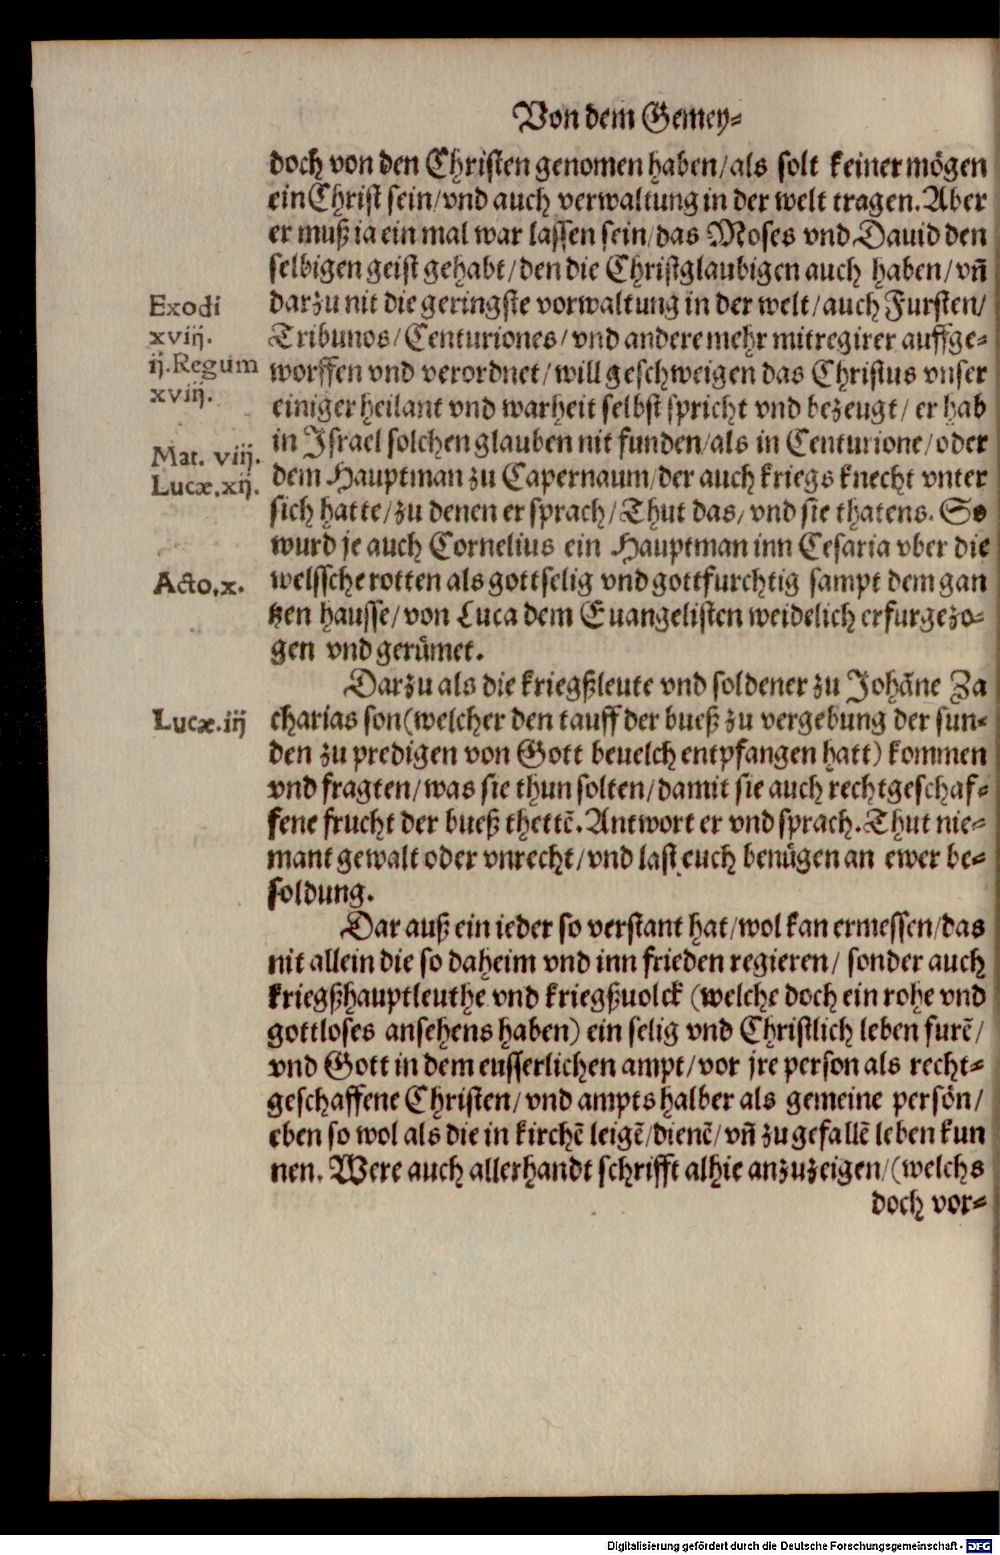 Von dem Gemey⸗
doch von den Christen genomen haben/als solt keiner mögen
ein Christ sein/vnd auch verwaltung in der welt tragen. Aber
er muß ia ein mal war lassen sein/das Moses vnd Dauid den
selbigen geist gehabt/den die Christglaubigen auch haben/vn̄
Exodi
xviij.
ij.Regum
xviij.
darzu nit die geringste vorwaltung in der welt/auch Fursten/
Tribunos/Centuriones/vnd andere mehr mitregirer auffge⸗
worffen vnd verordnet/will geschweigen das Christus vnser
einiger heilant vnd warheit selbst spricht vnd bezeugt/er hab
Mat. viij.
Lucæ.xij.
in Israel solchen glauben nit funden/als in Centurione/oder
dem Hauptman zu Capernaum/der auch kriegs knecht vnter
sich hatte/zu denen er sprach/Thut das/vnd sie thatens. So
wurd je auch Cornelius ein Hauptman inn Cesaria vber die
Acto.x.
welssche rotten als gottselig vnd gottfurchtig sampt dem gan
tzen hausse/von Luca dem Euangelisten weidelich erfurgezo⸗
gen vnd gerůmet.
Darzu als die kriegßleute vnd soldener zu Johāne Za
Lucæ.iij
charias son(welcher den tauff der bueß zu vergebung der sun⸗
den zu predigen von Gott beuelch entpfangen hatt) kommen
vnd fragten/was sie thun solten/damit sie auch rechtgeschaf⸗
fene frucht der bueß thettē. Antwort er vnd sprach. Thut nie⸗
mant gewalt oder vnrecht/vnd last euch benůgen an ewer be⸗
soldung.
Dar auß ein ieder so verstant hat/wol kan ermessen/das
nit allein die so daheim vnd inn frieden regieren/ sonder auch
kriegßhauptleuthe vnd kriegßuolck (welche doch ein rohe vnd
gottloses ansehens haben) ein selig vnd Christlich leben furē/
vnd Gott in dem eusserlichen ampt/vor jre person als recht⸗
geschaffene Christen/vnd ampts halber als gemeine persön/
eben so wol als die in kirchē leigē/dienē/vn̄ zu gefallē leben kun
nen. Were auch allerhandt schrifft alhie anzuzeigen/(welchs
doch vor⸗
Digitalisierung gefördert durch die Deutsche Forschungsgemeinschaft - DFG